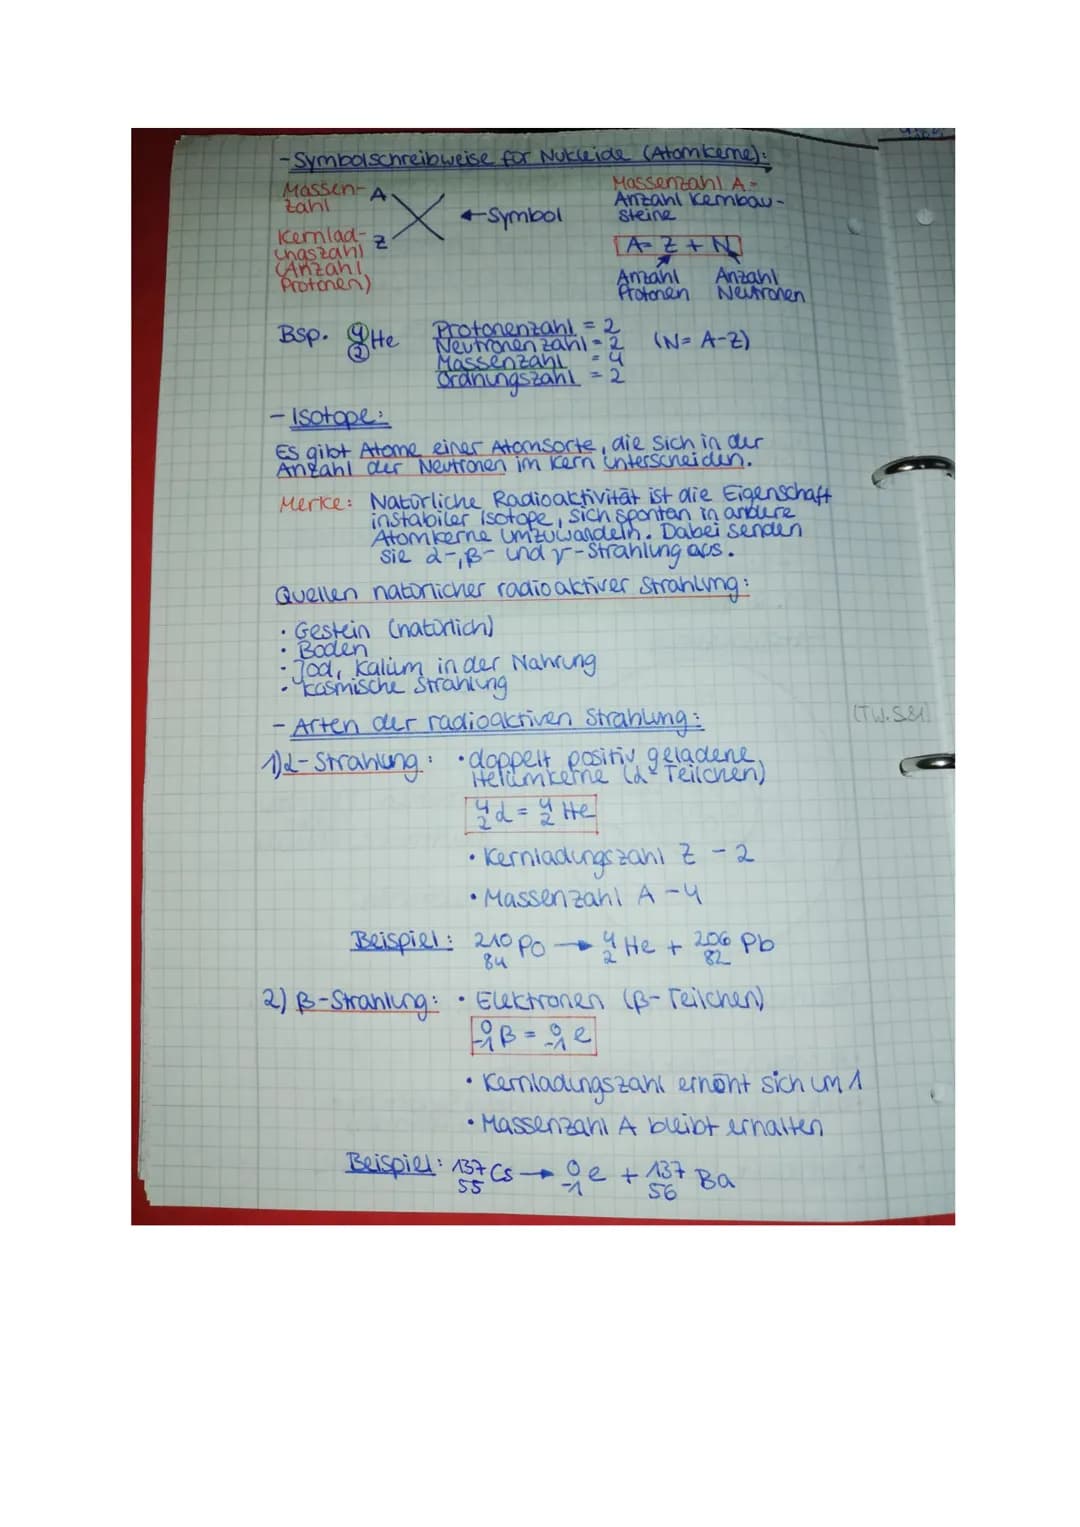 - Symbolschreibweise für Nukleide (Atomkerne):
Massen-
zahl
A
X
Kernlad-
ungszahl
(Anzahl
Protonen)
Z
← Symbol
Massenzahl A =
Anzahl Kernbau-
steine
A = Z + N
Anzahl Protonen
Anzahl Neutronen
Bsp. ⁴₂He
Protonenzahl = 2
Neutronenzahl = 2 (N = A-Z)
Massenzahl = 4
Ordnungszahl = 2
- Isotope:
Es gibt Atome einer Atomsorte, die sich in der
Anzahl der Neutronen im Kern unterscheiden.
Merke: Natürliche Radioaktivität ist die Eigenschaft
instabiler Isotope, sich spontan in andere
Atomkerne umzuwandeln. Dabei senden
sie α-, β- und γ-Strahlung aus.
Quellen natürlicher radioaktiver Strahlung:
• Gestein (natürlich)
• Boden
• Jod, Kalium in der Nahrung
• kosmische Strahlung
- Arten der radioaktiven Strahlung: (TW. S.81)
1) α-Strahlung: • doppelt positiv geladene
Heliumkerne (α-Teilchen)
⁴₂α = ⁴₂He
• Kernladungszahl Z - 2
• Massenzahl A - 4
Beispiel: ²¹⁰₈₄Po → ⁴₂He + ²⁰⁶₈₂Pb
2) β-Strahlung: • Elektronen (β-Teilchen)
⁰₋₁β = ⁰₋₁e
• Kernladungszahl erhöht sich um 1
• Massenzahl A bleibt erhalten
Beispiel: ¹³⁷₅₅Cs → ⁰₋₁e + ¹³⁷₅₆Ba